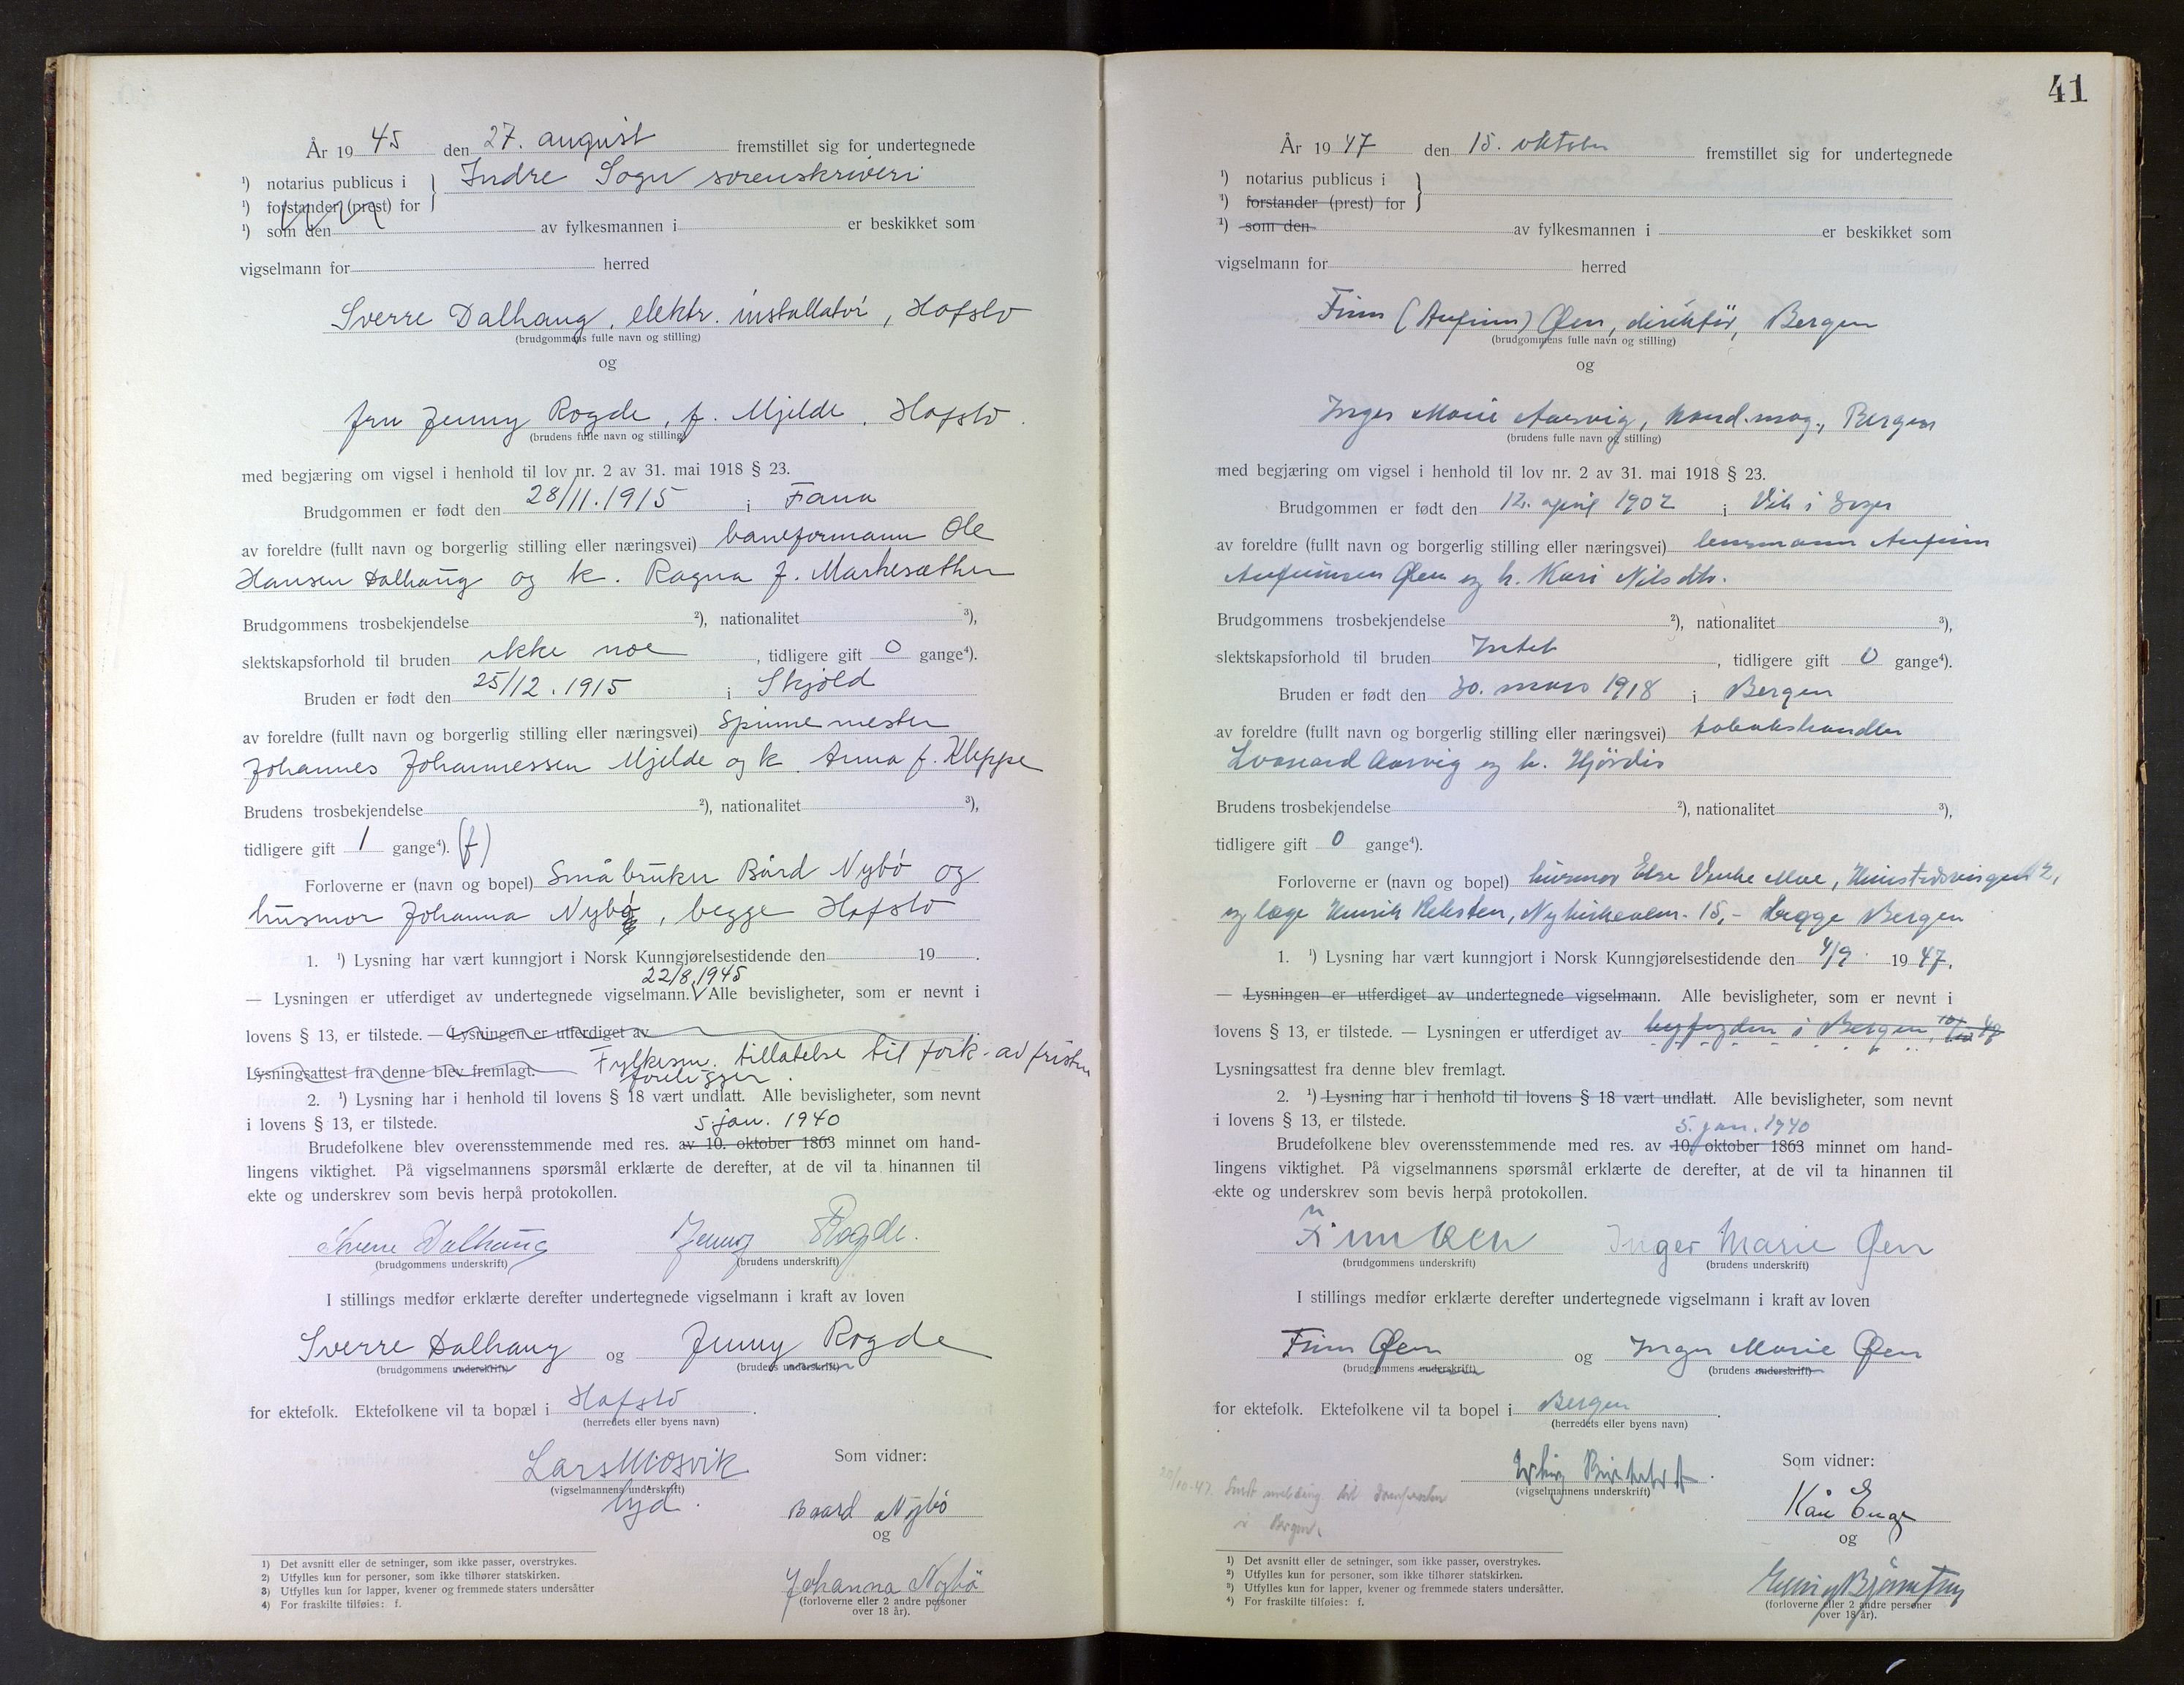 År 19 45 den 27. august fremstillet sig for undertegnede
¹) notarius publicus i } Indre Sogn sorenskriveri
¹) forstander (prest) for
¹) som den av fylkesmannen i er beskikket som
vigselmann for herred
Sverre Dalhaug, elektr. installatør, Hafslo
(brudgommens fulle navn og stilling)
og
fru Jenny Rogde, f. Mjelde, Hafslo.
(brudens fulle navn og stilling)
med begjæring om vigsel i henhold til lov nr. 2 av 31. mai 1918 § 23.
Brudgommen er født den 28/11.1915 i Fana
av foreldre (fullt navn og borgerlig stilling eller næringsvei) baneformann Ole
Hansen Dalhaug og k. Ragna f. Markesæther
Brudgommens trosbekjendelse ²), nationalitet ³),
slektskapsforhold til bruden ikke noe, tidligere gift 0 gange⁴).
Bruden er født den 25/12.1915 i Skjold
av foreldre (fullt navn og borgerlig stilling eller næringsvei) spinnemester
Johannes Johannessen Mjelde og k. Anna f. Kleppe
Brudens trosbekjendelse ²), nationalitet ³),
tidligere gift 1 gange⁴). (f)
Forloverne er (navn og bopel) Småbruker Bård Nybø og
husmor Johanna Nybø, begge Hafslo
1. ¹) Lysning har vært kunngjort i Norsk Kunngjørelsestidende den 19 .
22/8.1945
— Lysningen er utferdiget av undertegnede vigselmann. V Alle bevisligheter, som er nevnt i
lovens § 13, er tilstede. — Lysningen er utferdiget av
Lysningsattest fra denne blev fremlagt. Fylkesm. tillatelse til fork. av fristen
foreligger.
2. ¹) Lysning har i henhold til lovens § 18 vært undlatt. Alle bevisligheter, som nevnt
i lovens § 13, er tilstede. 5. jan. 1940
Brudefolkene blev overensstemmende med res. av 10. oktober 1863 minnet om hand-
lingens viktighet. På vigselmannens spørsmål erklærte de derefter, at de vil ta hinannen til
ekte og underskrev som bevis herpå protokollen.
Sverre Dalhaug Jenny Rogde.
(brudgommens underskrift) (brudens underskrift)
I stillings medfør erklærte derefter undertegnede vigselmann i kraft av loven
Sverre Dalhaug og Jenny Rogde
(brudgommens underskrift) (brudens underskrift)
for ektefolk. Ektefolkene vil ta bopæl i Hafslo.
(herredets eller byens navn)
Lars Mosvik Som vidner:
(vigselmannens underskrift)
Baard Nybö
og
Johanna Nybö
(forloverne eller 2 andre personer
over 18 år).
1) Det avsnitt eller de setninger, som ikke passer, overstrykes.
2) Utfylles kun for personer, som ikke tilhører statskirken.
3) Utfylles kun for lapper, kvener og fremmede staters undersåtter
4) For fraskilte tilføies: f.
41
År 19 47 den 15. oktober fremstillet sig for undertegnede
¹) notarius publicus i }
¹) forstander (prest) for
¹) som den av fylkesmannen i er beskikket som
vigselmann for herred
Finn (Anfinn) Øen, direktør, Bergen
(brudgommens fulle navn og stilling)
og
Inger Marie Aarvig, kand.mag., Bergen
(brudens fulle navn og stilling)
med begjæring om vigsel i henhold til lov nr. 2 av 31. mai 1918 § 23.
Brudgommen er født den 12. april 1902 i Vik i Sogn
av foreldre (fullt navn og borgerlig stilling eller næringsvei) lensmann Anfinn
Anfinnsen Øen og h. Kari Nilsdtr.
Brudgommens trosbekjendelse ²), nationalitet ³),
slektskapsforhold til bruden Intet, tidligere gift 0 gange⁴).
Bruden er født den 30. mars 1918 i Bergen
av foreldre (fullt navn og borgerlig stilling eller næringsvei) tobakshandler
Leonard Aarvig og h. Hjørdis
Brudens trosbekjendelse ²), nationalitet ³),
tidligere gift 0 gange⁴).
Forloverne er (navn og bopel) husmor Else Venke Moe, 2,
og læge Henrik Reksten, 15,- begge Bergen
1. ¹) Lysning har vært kunngjort i Norsk Kunngjørelsestidende den 4/9. 19 47,
— Lysningen er utferdiget av undertegnede vigselmann. Alle bevisligheter, som er nevnt i
lovens § 13, er tilstede. — Lysningen er utferdiget av byfogden i Bergen
Lysningsattest fra denne blev fremlagt.
2. ¹) Lysning har i henhold til lovens § 18 vært undlatt. Alle bevisligheter, som nevnt
i lovens § 13, er tilstede. 5. jan. 1940
Brudefolkene blev overensstemmende med res. av 10. oktober 1863 minnet om hand-
lingens viktighet. På vigselmannens spørsmål erklærte de derefter, at de vil ta hinannen til
ekte og underskrev som bevis herpå protokollen.
Finn Øen Inger Marie Øen
(brudgommens underskrift) (brudens underskrift)
I stillings medfør erklærte derefter undertegnede vigselmann i kraft av loven
Finn Øen og Inger Marie Øen
(brudgommens underskrift) (brudens underskrift)
for ektefolk. Ektefolkene vil ta bopel i Bergen.
(herredets eller byens navn)
Som vidner:
(vigselmannens underskrift)
20/10-47. Sendt melding til
i Bergen.
og
(forloverne eller 2 andre personer
over 18 år).
1) Det avsnitt eller de setninger, som ikke passer, overstrykes.
2) Utfylles kun for personer, som ikke tilhører statskirken.
3) Utfylles kun for lapper, kvener og fremmede staters undersåtter.
4) For fraskilte tilføies: f.